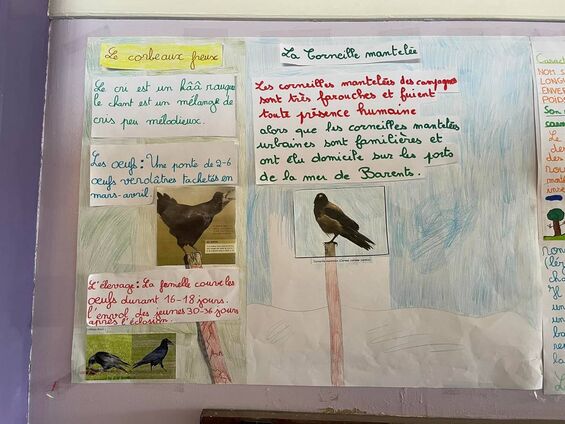 Le corbeaux freux
Le cri est un kââ rauque
le chant est un mélange de
cris peu mélodieux.
Les œufs : Une ponte de 2-6
œufs verdâtres tachetés en
mars-avril.
L'élevage : La femelle couve les
œufs durant 16-18 jours.
l'envol des jeunes 30-36 jours
après l'éclosion.
La Corneille mantelée
Les corneilles mantelées des campagnes
sont très farouches et fuient
toute présence humaine
alors que les corneilles mantelées
urbaines sont familières et
ont élu domicile sur les ports
de la mer de Barents.